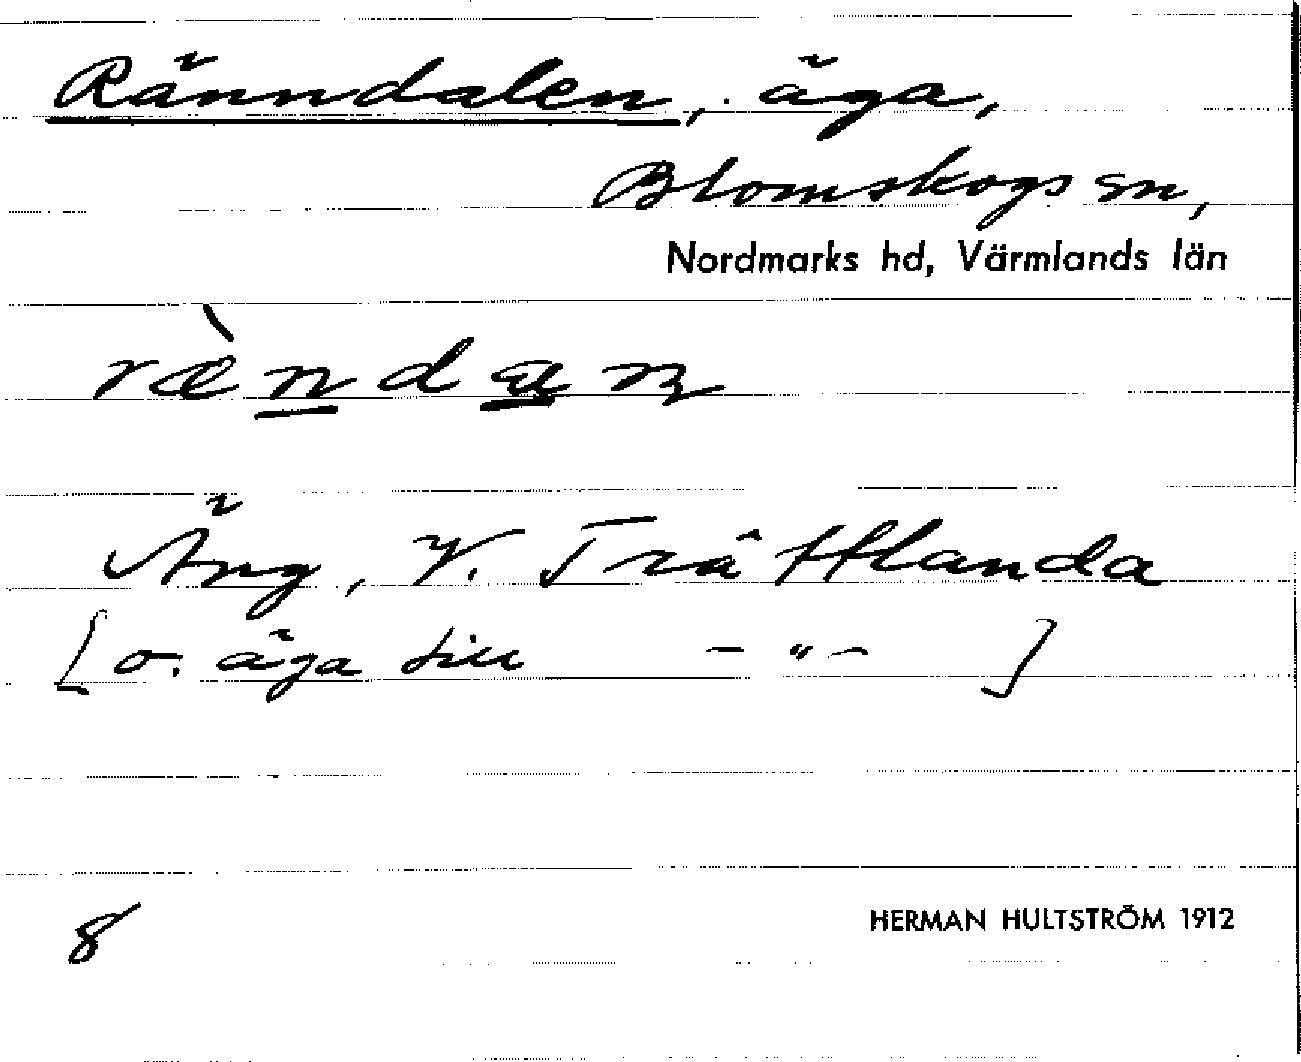 Ränndalen, äga,
Blomskogs sn,
Nordmarks hd, Värmlands län
ræ̀ndaɲ
Äng, V. Trättlanda
[o. äga till — „ — ]
8
HERMAN HULTSTRÖM 1912